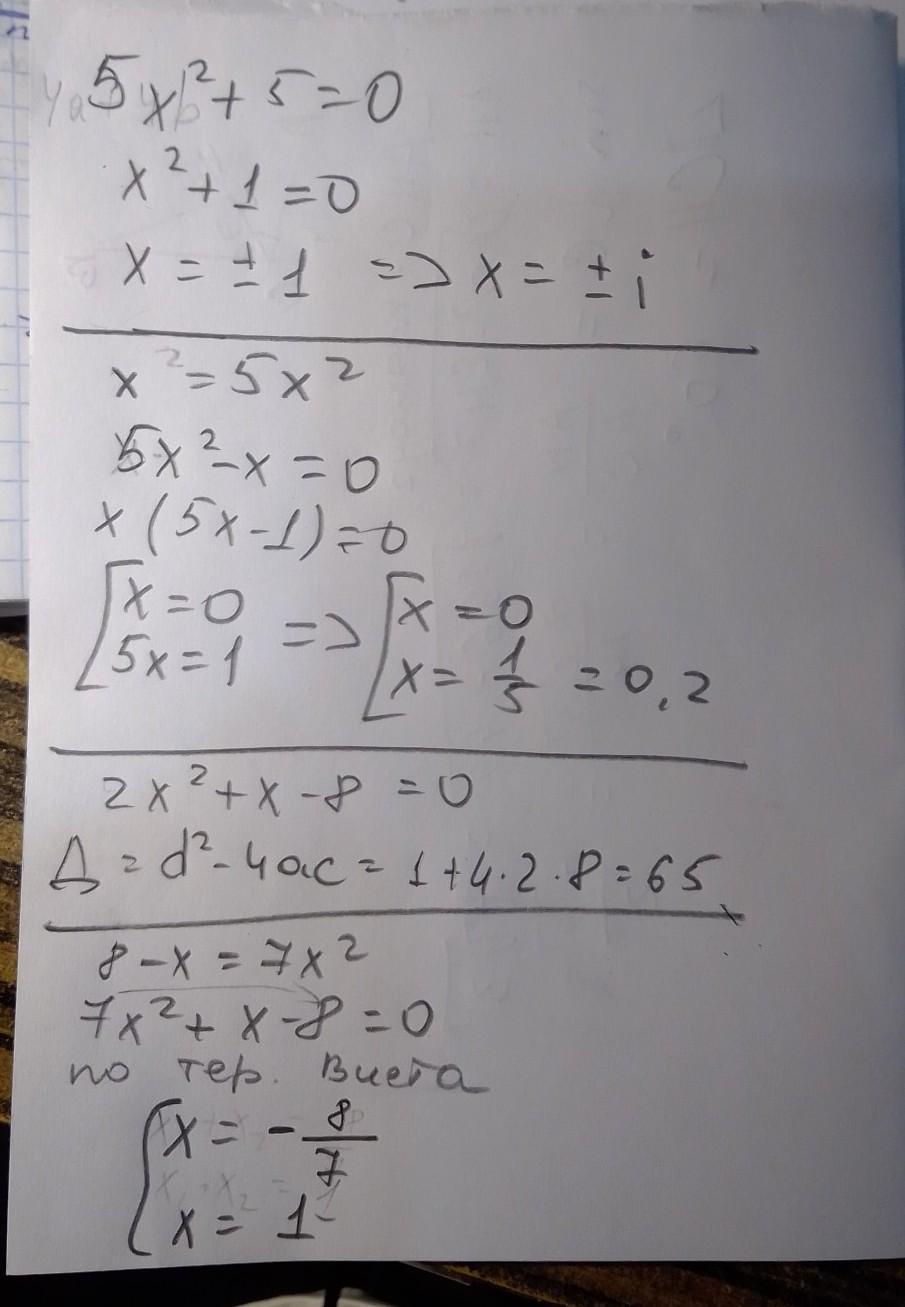 5x²+5=0
x²+1=0
x=±1 => x=±i
x²=5x²
5x²-x=0
x(5x-1)=0
[x=0 => [x=0
5x=1 x=1/5=0,2
2x²+x-8=0
Д=d²-4ac=1+4·2·8=65
8-x=7x²
7x²+x-8=0
по тер. Виета
{x=-8/7
x=1